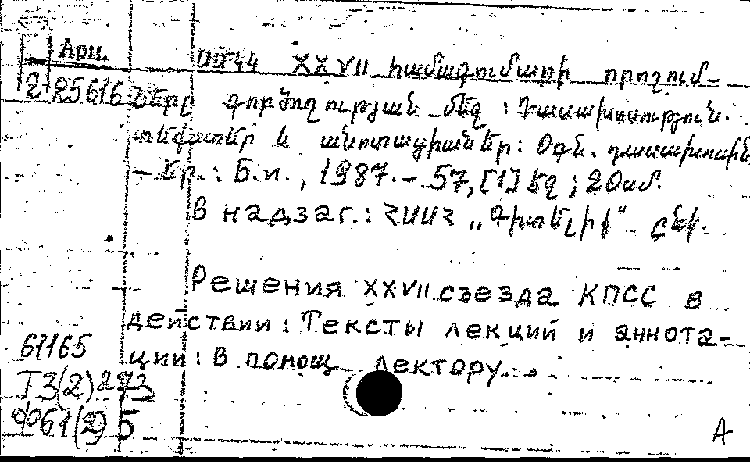 Арм.
ՍՄԿԿ XXVII համագումարի որոշում-
2-25616 ները գործողության մեջ : Դասախոսություն.
տեքստեր և անոտացիաներ : Օգն. դասախոսին
– Եր. : Б.и., 1987. – 57, [1] էջ ; 20սմ.
В надзаг.: ՀՍՍՀ „Գիտելիք“ ընկ.
Решения XXVII съезда КПСС в
действии : Тексты лекций и аннота-
ции : В помощ лектору.
67165
Т3(2)273
9061(2)5
А